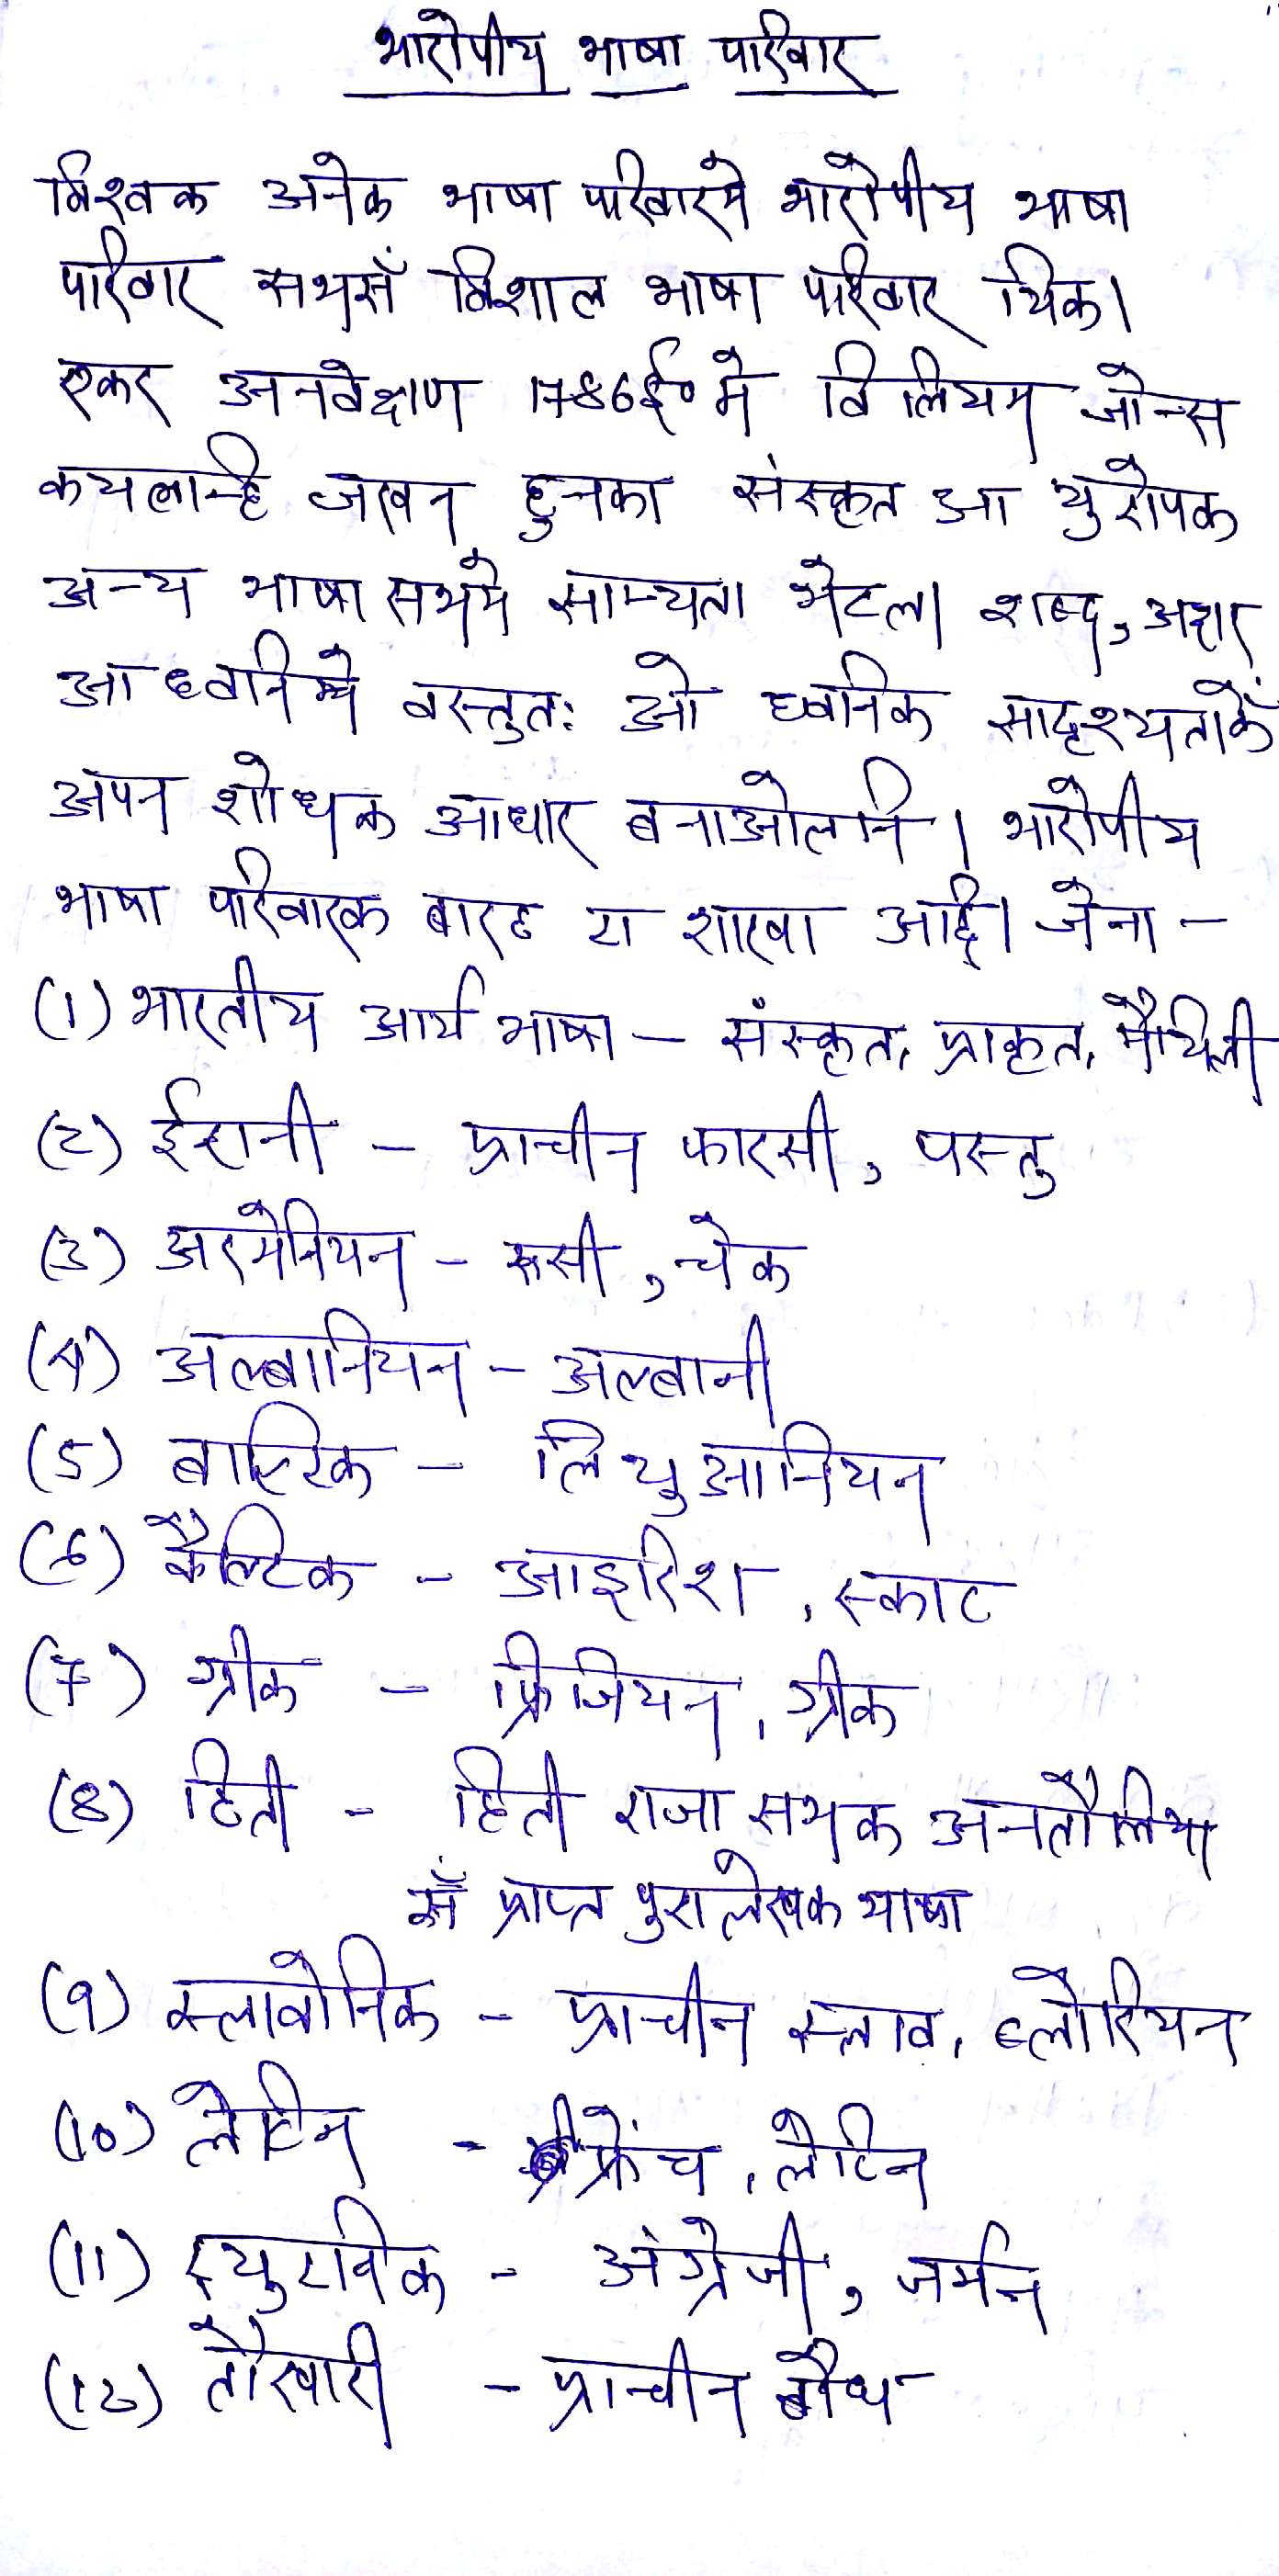 भारोपीय भाषा परिवार
विश्वक अनेक भाषा परिवारमे भारोपीय भाषा
परिवार सभसँ विशाल भाषा परिवार थिक।
एकर अनवेक्षण 1786ई० मे विलियम जोन्स
कयलन्हि जखन हुनका संस्कृत आ युरोपक
अन्य भाषा सभमे साम्यता भेटल। शब्द, अक्षर
आ ध्वनिमे वस्तुतः ओ ध्वनिक सादृश्यताकेँ
अपन शोधक आधार बनाओलनि। भारोपीय
भाषा परिवारक बारह टा शाखा अछि। जेना -
(1) भारतीय आर्य भाषा - संस्कृत, प्राकृत, मैथिली
(2) ईरानी - प्राचीन फारसी, पस्तु
(3) अरमेनियन - रूसी, चेक
(4) अल्बानियन - अल्बानी
(5) बाल्टिक - लिथुआनियन
(6) कैल्टिक - आइरिश, स्काट
(7) ग्रीक - फ्रिजियन, ग्रीक
(8) हिती - हिती राजा सभक अनतौलिया
सँ प्राप्त पुरालेखक भाषा
(9) स्लावोनिक - प्राचीन स्लाव,
(10) लेटिन - फ्रेंच, लेटिन
(11) ट्युटानिक - अंग्रेजी, जर्मन
(12) तौखारी - प्राचीन बौध